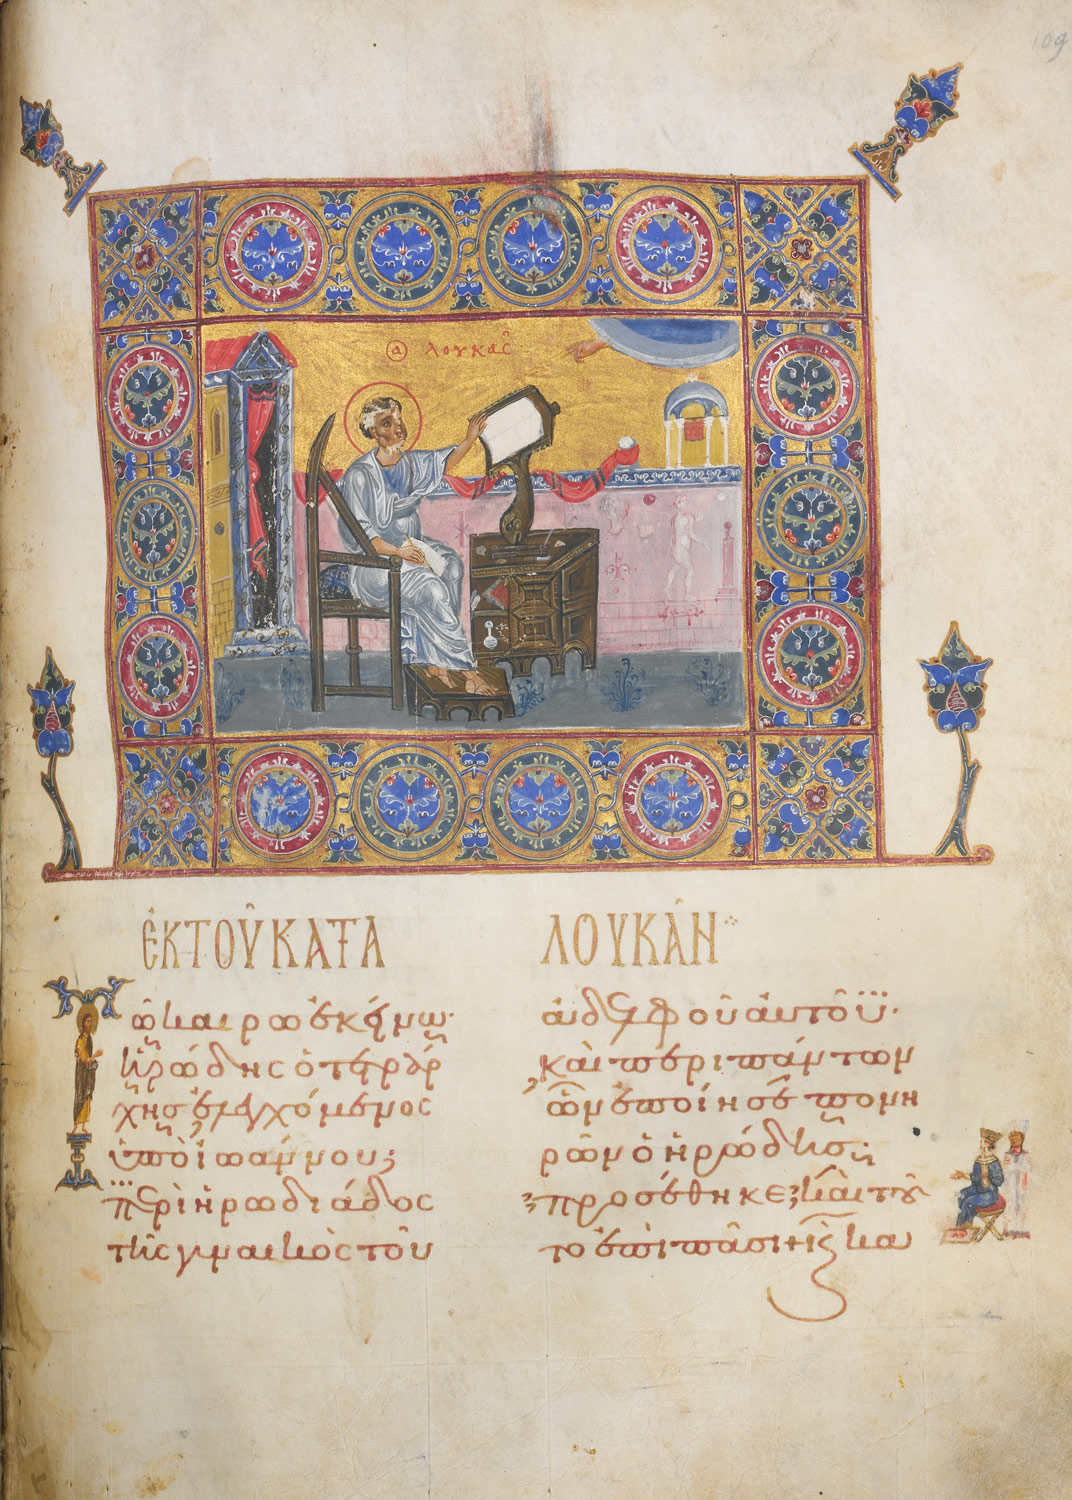 109
ὁ ἅ λουκᾶς
ἐκ τοῦ κατὰ λουκᾶν
Τῶ καιρῶ ἐκείνω·
ἡρώδης ὁ τετράρ
χης ἐλεγχόμενος
ὑπὸ ἰωάννου;
περὶ ἡρωδιάδος
τῆς γυναικὸς τοῦ
ἀδελφοῦ αὐτοῦ·
καὶ περὶ πάντων
ὧν ἐποίησε πονη
ρῶν ὁ ἡρώδης;
προσέθηκε, καὶ τοῦ
το ἐπὶ πᾶσι· καὶ κα